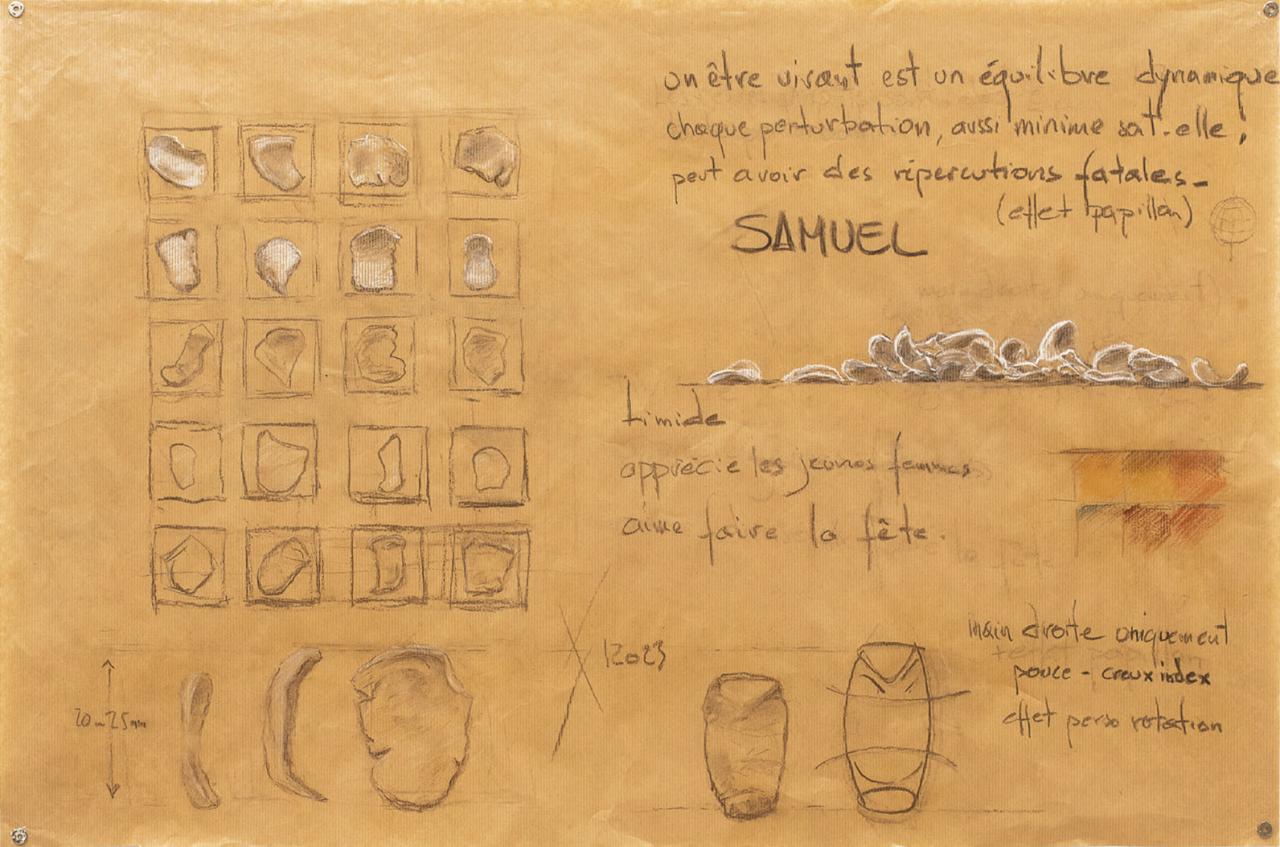 un être vivant est un équilibre dynamique
chaque perturbation, aussi minime soit-elle,
peut avoir des répercutions fatales_
(effet papillon)
SAMUEL
timide
apprécie les jeunes femmes
aime faire la fête.
main droite uniquement
pouce - creux index
effet perso rotation